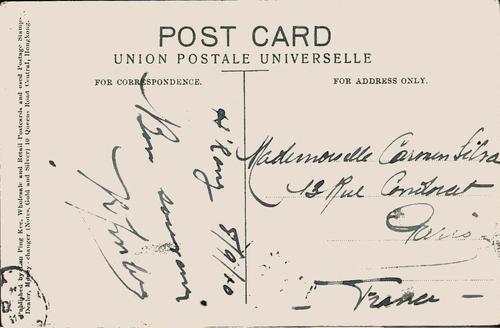 POST CARD
UNION POSTALE UNIVERSELLE
FOR CORRESPONDENCE.
FOR ADDRESS ONLY.
H'Kong 8/9/10
Bon souvenir
Mademoiselle Carmen Silva
13 Rue Condorcet
Paris
France
Published by Lau Ping Kee, Wholesale and Retail Postcards and used Postage Stamp
Dealer, Money-changer (Notes, Gold and Silver) 10 Queens Road Central, Hongkong.